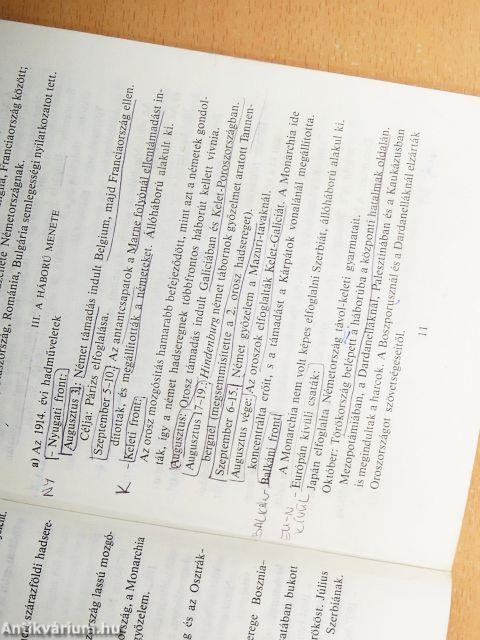 Franciaország között;
Románia, Bulgária semlegességi nyilatkozatot tett.
III. A HÁBORÚ MENETE
a) Az 1914. évi hadműveletek
NY
- Nyugati front:
Augusztus 3.: Német támadás indult Belgium, majd Franciaország ellen.
Célja: Párizs elfoglalása.
Szeptember 5-10.: Az antantcsapatok a Marne folyónál ellentámadást in-
dítottak, és megállították a németeket. Állóháború alakult ki.
K
- Keleti front:
Az orosz mozgósítás hamarabb befejeződött, mint azt a németek gondol-
ták, így a német hadseregnek többfrontos háborút kellett vívnia.
Augusztus: Orosz támadás indult Galíciában és Kelet-Poroszországban.
Augusztus 17-19.: Hindenburg német tábornok győzelmet aratott Tannen-
bergnél (megsemmisítette a 2. orosz hadsereget).
Szeptember 6-15.: Német győzelem a Mazuri-tavaknál.
Augusztus vége: Az oroszok elfoglalták Kelet-Galíciát. A Monarchia ide
koncentrálta erőit, s a támadást a Kárpátok vonalánál megállította.
BALKÁN
- Balkáni front:
A Monarchia nem volt képes elfoglalni Szerbiát, állóháború alakul ki.
EU-N
KÍVÜL
- Európán kívüli csaták:
Japán elfoglalta Németország távol-keleti gyarmatait.
Október: Törökország belépett a háborúba a központi hatalmak oldalán.
Mezopotámiában, a Dardanelláknál, Palesztinában és a Kaukázusban
is megindultak a harcok. A Boszporusznál és a Dardanelláknál elzárták
Oroszországot szövetségeseitől.
11
szárazföldi hadsere-
ország lassú mozgó-
ország, a Monarchia
győzelem.
g és az Osztrák-
erege Bosznia-
tában bukott
rököst. Július
Szerbiának.
Antikvárium.hu